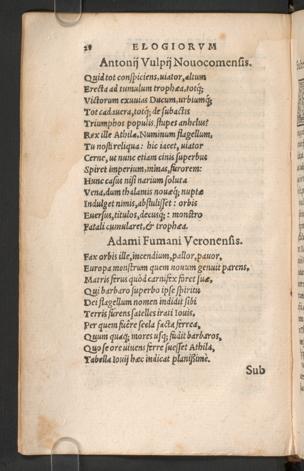 28 ELOGIORVM
Antonij Vulpij Nouocomensis.
Quid tot conspiciens, uiator, altum
Erecta ad tumulum trophæa, totq́;
Victorum exuuias Ducum, urbiumq́;
Tot cad uera, totq́; de subactis
Triumphos populis, stupes anhelus?
Rex ille Athila, Numinum flagellum,
Tu nosti reliqua: hic iacet, uiator
Cerne, ut nunc etiam cinis superbus
Spiret imperium, minas, furorem:
Hunc casus nisi narium soluta
Vena, dum thalamis nouæq́; nuptæ
Indulget nimis, abstulisset: orbis
Euersus, titulos, decusq́;: monstro
Fatali cumularet, & trophæa.
Adami Fumani Veronensis.
Fax orbis ille, incendium, pallor, pauor,
Europa monstrum quem nouum genuit parens,
Matris ferus quòd carnifex foret suæ,
Qui barbaro superbo ipse spiritu
Dei flagellum nomen indidit sibi
Terris furens satelles irati Iouis,
Per quem fuêre secla facta ferrea,
Quum quæq́; mores usq́; fudit barbaros,
Quo se ore uiuens ferre sueßet Athila,
Tabella Iouij hæc indicat planißimè.
Sub